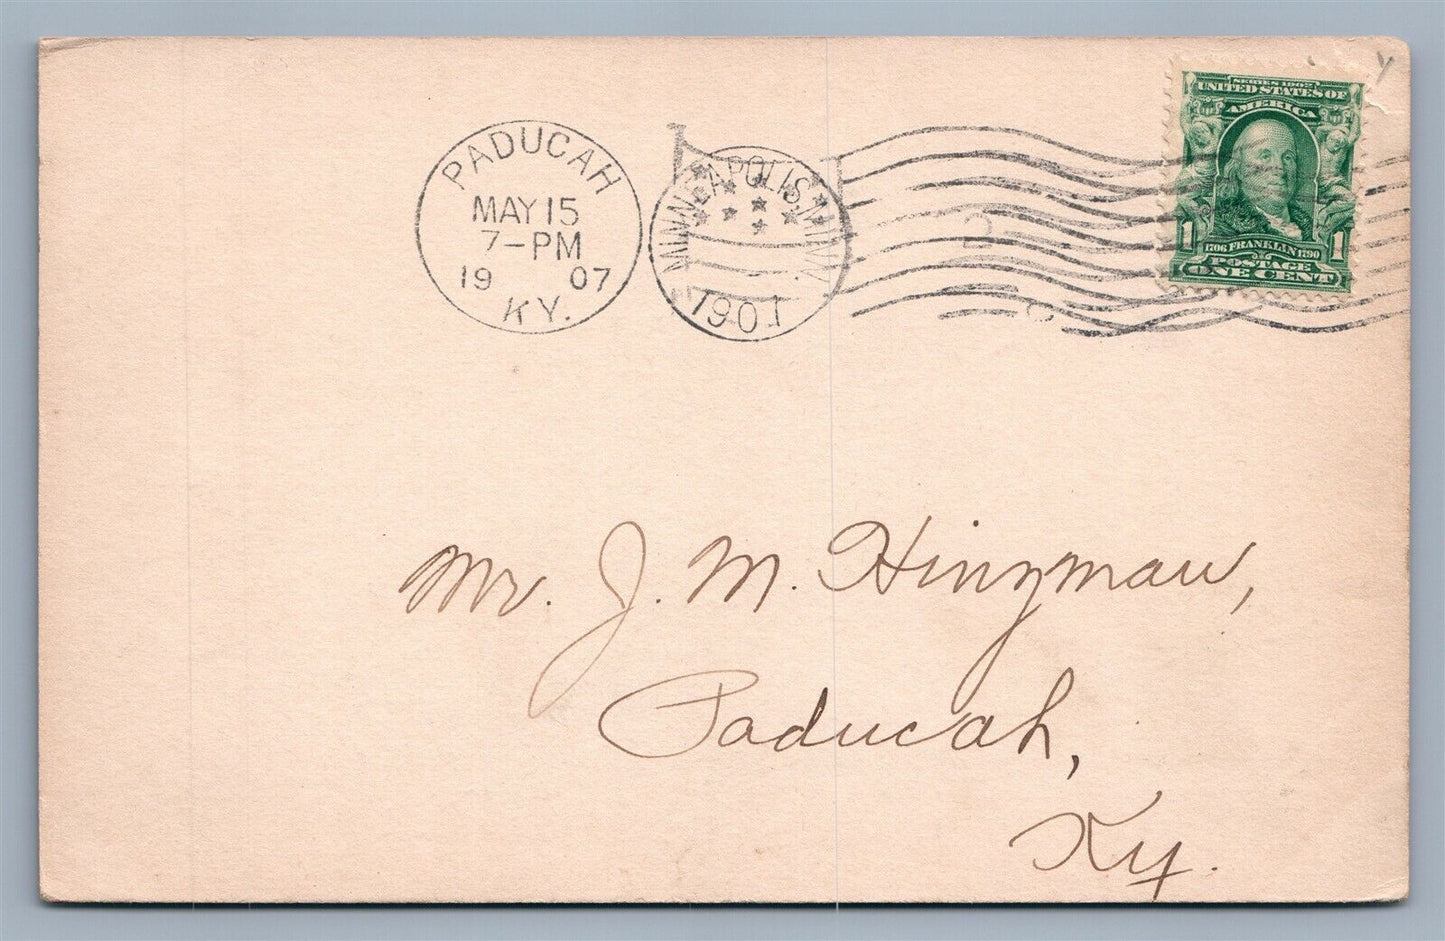 PADUCAH
MAY 15
7-PM
19 07
KY.
MINNEAPOLIS, MINN.
1907
SERIES 1902
UNITED STATES OF
AMERICA
1 1706 FRANKLIN 1790 1
POSTAGE
ONE CENT
Mr. J. M. Hinzman,
Paducah,
Ky.